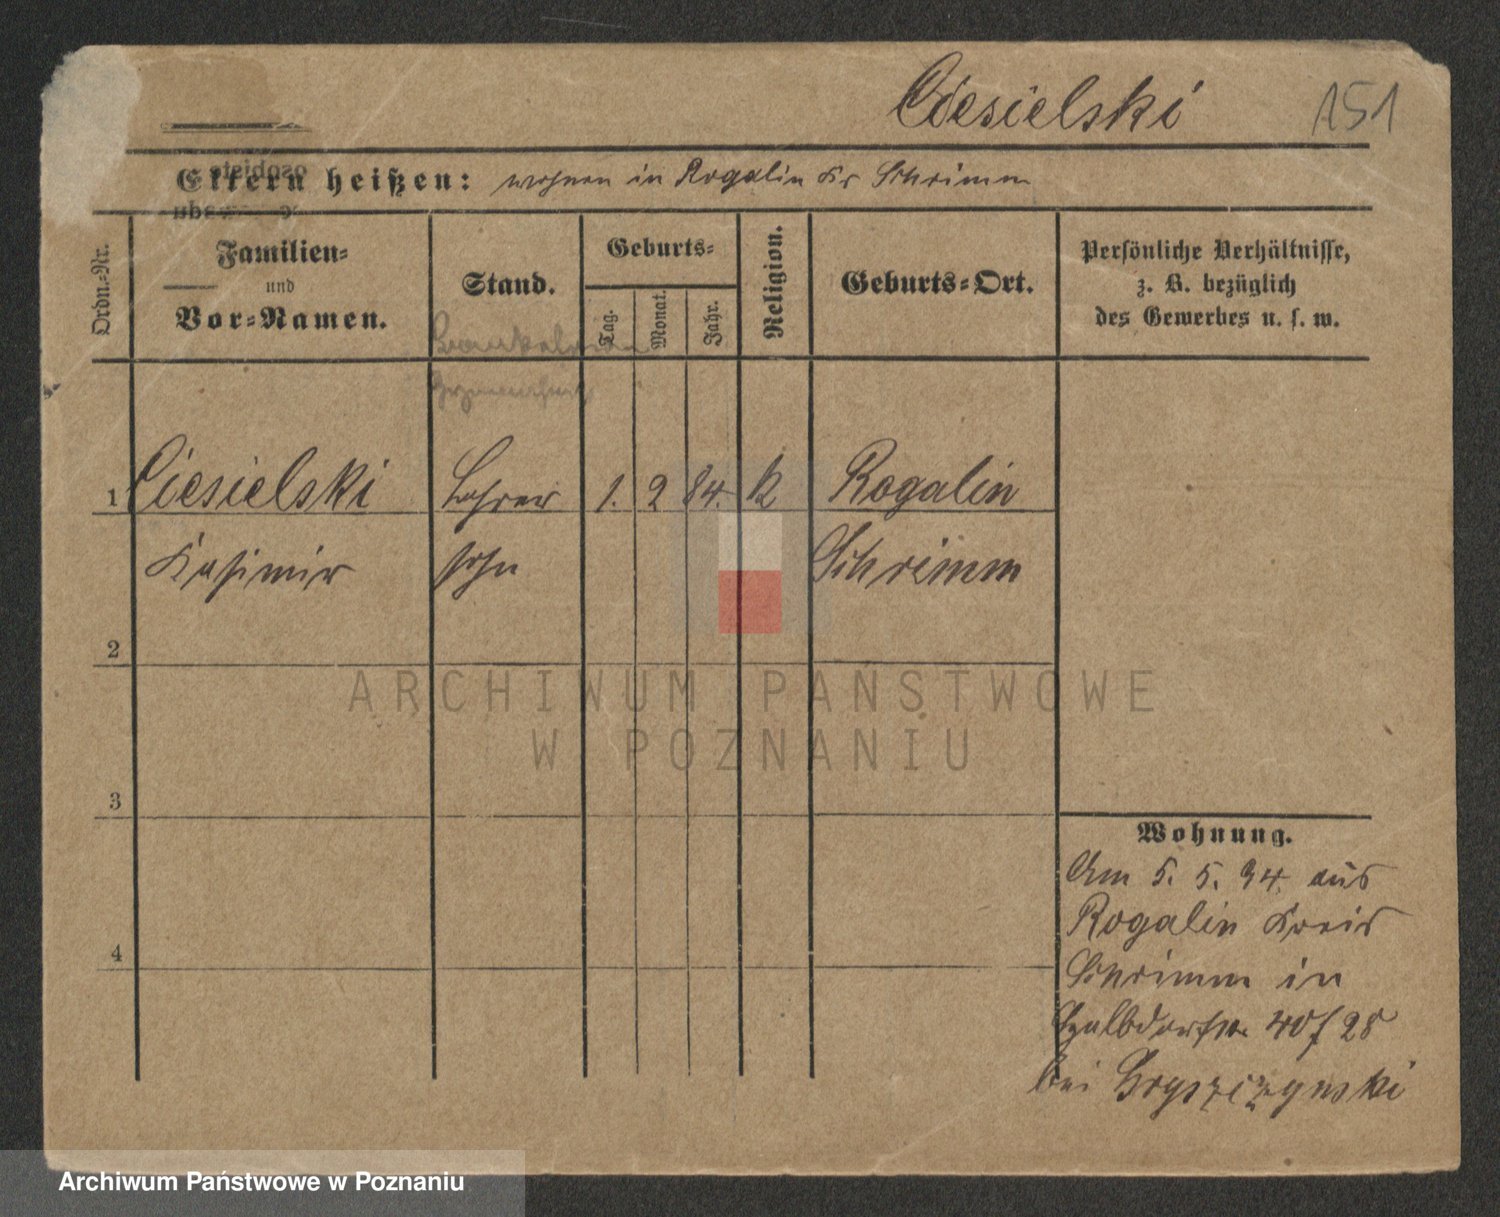 Ciesielski 151
Eltern heißen: wohnen in Rogalin Kr Schrimm
Ordn.-Nr.
Familien-
und
Vor-Namen.
Stand.
Geburts-
Tag.
Monat.
Jahr.
Religion.
Geburts-Ort.
Persönliche Verhältnisse,
z. B. bezüglich
des Gewerbes u. s. w.
1 Ciesielski Lehrer 1. 2 84. k Rogalin
Kasimir sohn Schrimm
2
3
4
ARCHIWUM PAŃSTWOWE
W POZNANIU
Wohnung.
Am 5. 5. 94. aus
Rogalin Kreis
Schrimm in
Halbdorfstr 40 f 28
bei
Archiwum Państwowe w Poznaniu